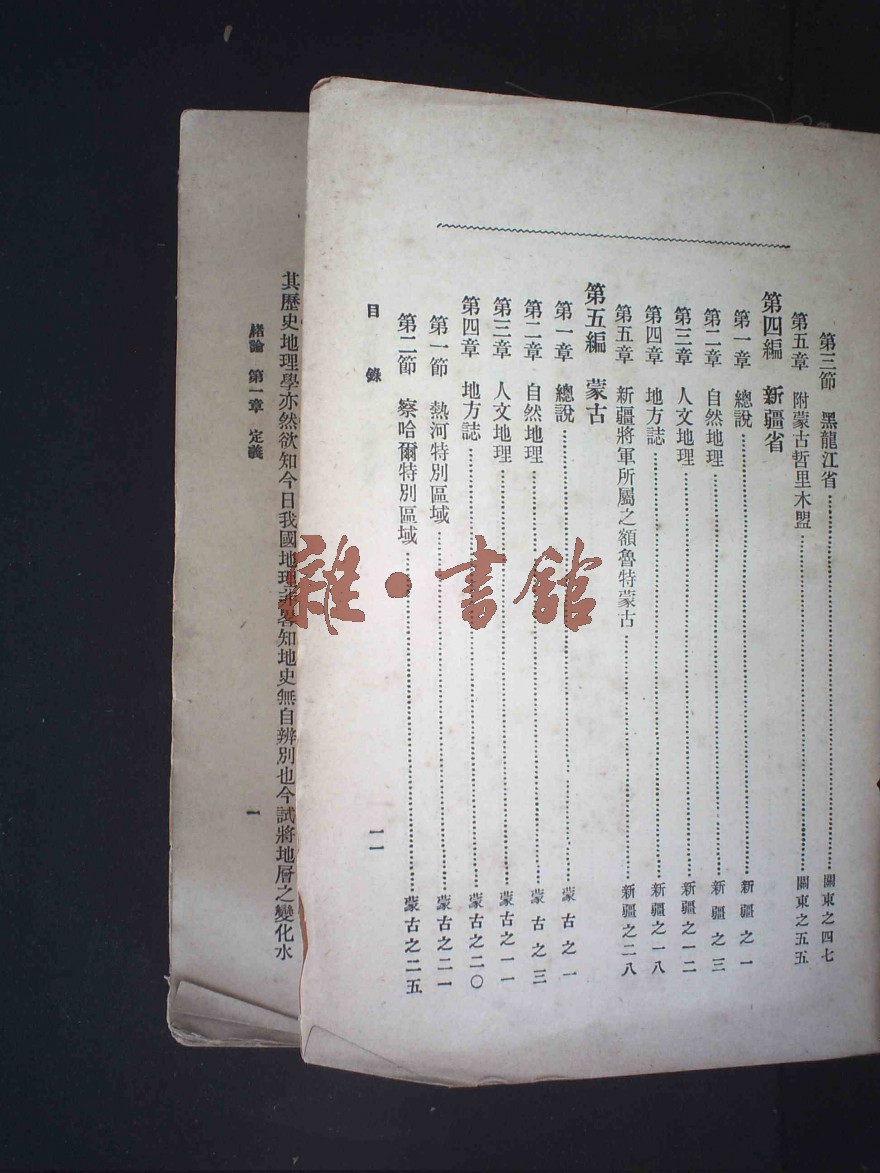 第三節　黑龍江省……關東之四七
第五章　附蒙古哲里木盟……關東之五五
第四編　新疆省
第一章　總說……新疆之一
第二章　自然地理……新疆之三
第三章　人文地理……新疆之一二
第四章　地方誌……新疆之一八
第五章　新疆將軍所屬之額魯特蒙古……新疆之二八
第五編　蒙古
第一章　總說……蒙古之一
第二章　自然地理……蒙古之三
第三章　人文地理……蒙古之一一
第四章　地方誌……蒙古之二〇
第一節　熱河特別區域……蒙古之二一
第二節　察哈爾特別區域……蒙古之二五
目錄　一一
其歷史地理學亦然欲知今日我國地理非畧知地史無自辨別也今試將地層之變化水
緒論　第一章　定義　一
雜·書館